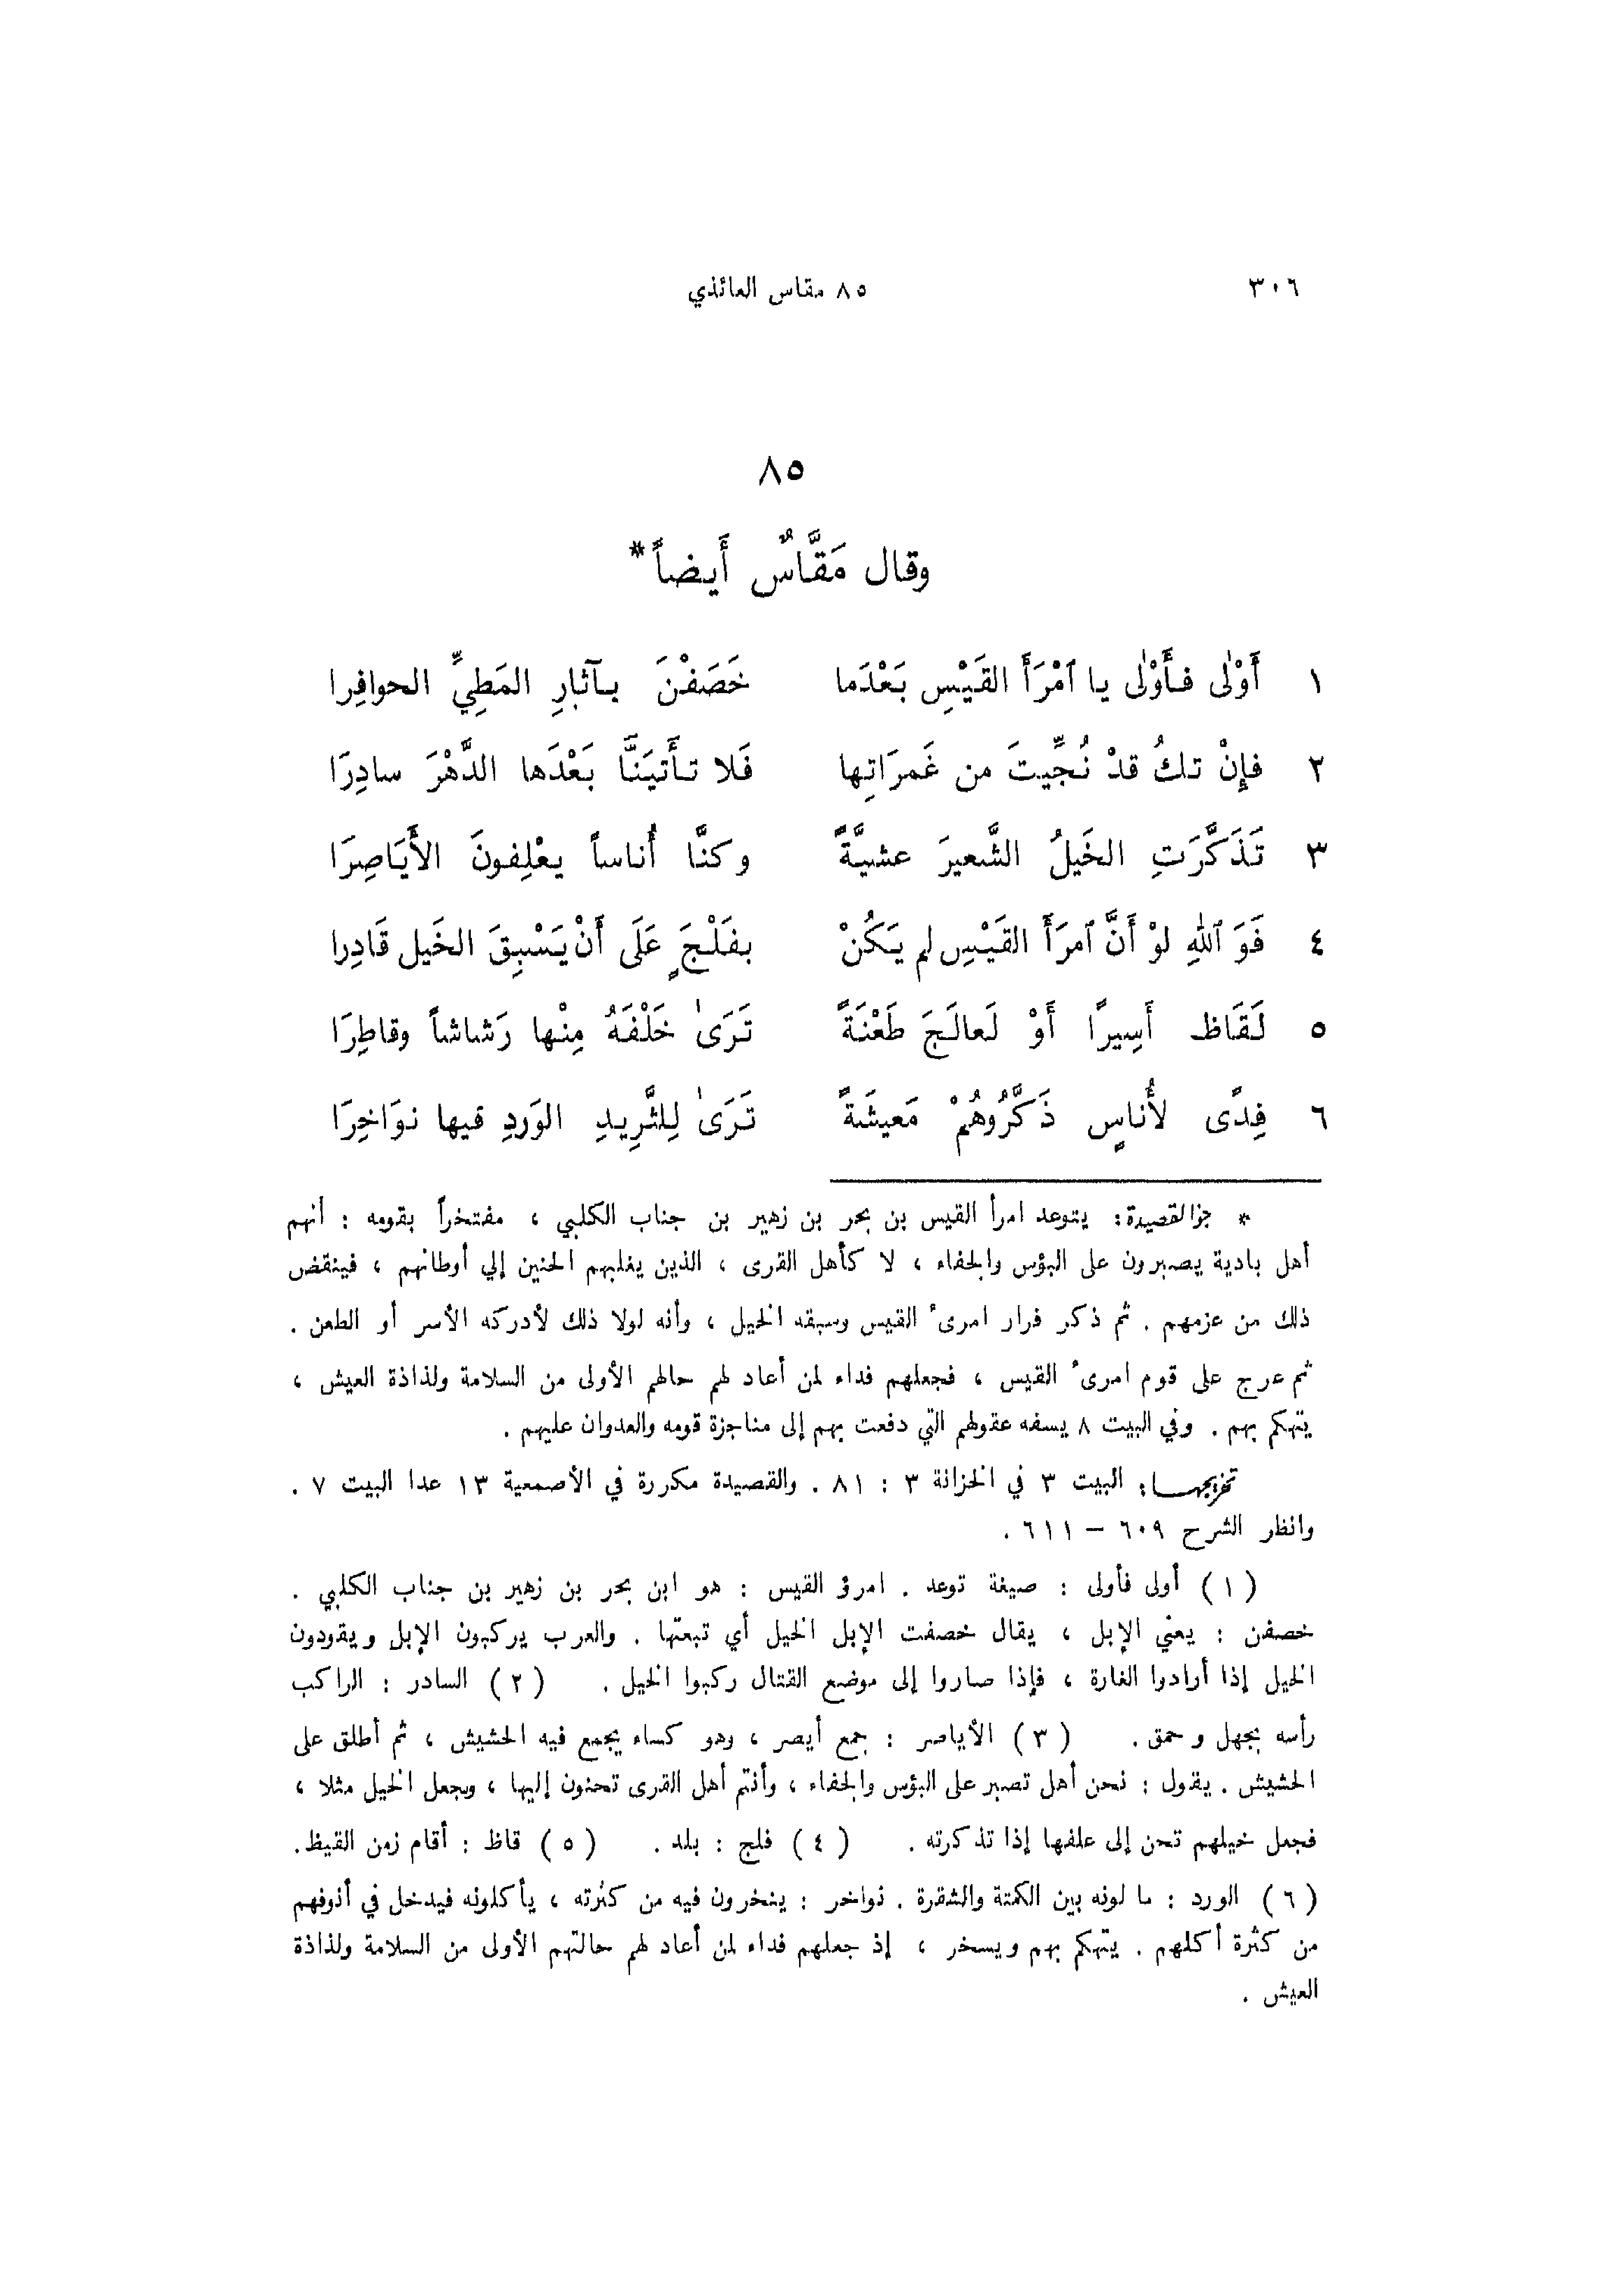 ٣٠٦ ٨٥ مقاس العائذي
٨٥
وقال مَقَّاسٌ أَيضاً*
١ أَوْلٰى فأَوْلٰى يا ٱمْرَأَ القَيْسِ بَعْدَما خَصَفْنَ بآثارِ المَطِيِّ الحوافِرا
٢ فإِنْ تكُ قدْ نُجِّيتَ من غَمرَاتِها فَلا تأْتيَنَّا بَعْدَها الدَّهْرَ سادِرَا
٣ تَذَكَّرَتِ الخَيلُ الشَّعيرَ عشيَّةً وكنَّا أُناساً يعْلِفونَ الأَيَاصِرَا
٤ فَوَ ٱللهِ لوْ أَنَّ ٱمرَأَ القَيْسِ لم يَكُنْ بفَلْجَ ٍ عَلَى أَنْ يَسْبِقَ الخَيل قَادِرا
٥ لَقَاظ أَسِيرًا أَوْ لَعالَجَ طَعْنَةً تَرَىٰ خَلْفَهُ مِنْها رَشاشاً وقاطِرَا
٦ فِدًى لأُناسٍ ذَكَّرُوهُمْ مَعيشَةً تَرَىٰ لِلثَّرِيدِ الوَردِ فيها نوَاخِرَا
* جو القصيدة: يتوعد امرأ القيس بن بحر بن زهير بن جناب الكلبي ، مفتخراً بقومه : أنهم
أهل بادية يصبرون على البؤس والجفاء ، لا كأهل القرى ، الذين يغلبهم الحنين إلي أوطانهم ، فينقض
ذلك من عزمهم . ثم ذكر فرار امرئ القيس وسبقه الخيل ، وأنه لولا ذلك لأدركه الأسر أو الطعن .
ثم عرج على قوم امرئ القيس ، فجعلهم فداء لمن أعاد لهم حالهم الأولى من السلامة ولذاذة العيش ،
يتهكم بهم . وفي البيت ٨ يسفه عقولهم التي دفعت بهم إلى مناجزة قومه والعدوان عليهم .
تخريجها: البيت ٣ في الخزانة ٣ : ٨١ . والقصيدة مكررة في الأصمعية ١٣ عدا البيت ٧ .
وانظر الشرح ٦٠٩ – ٦١١ .
( ١ ) أولى فأولى : صيغة توعد . امرؤ القيس : هو ابن بحر بن زهير بن جناب الكلبي .
خصفن : يعني الإبل ، يقال خصفت الإبل الخيل أي تبعتها . والعرب يركبون الإبل ويقودون
الخيل إذا أرادوا الغارة ، فإذا صاروا إلى موضع القتال ركبوا الخيل . ( ٢ ) السادر : الراكب
رأسه بجهل وحمق . ( ٣ ) الأياصر : جمع أيصر ، وهو كساء يجمع فيه الحشيش ، ثم أطلق على
الحشيش . يقول : نحن أهل تصبر على البؤس والجفاء ، وأنتم أهل القرى تحنون إليها ، وجعل الخيل مثلا ،
فجعل خيلهم تحن إلى علفها إذا تذكرته . ( ٤ ) فلج : بلد . ( ٥ ) قاظ : أقام زمن القيظ .
( ٦ ) الورد : ما لونه بين الكمتة والشقرة . نواخر : ينخرون فيه من كثرته ، يأكلونه فيدخل في أنوفهم
من كثرة أكلهم . يتهكم بهم ويسخر ، إذ جعلهم فداء لمن أعاد لهم حالتهم الأولى من السلامة ولذاذة
العيش .